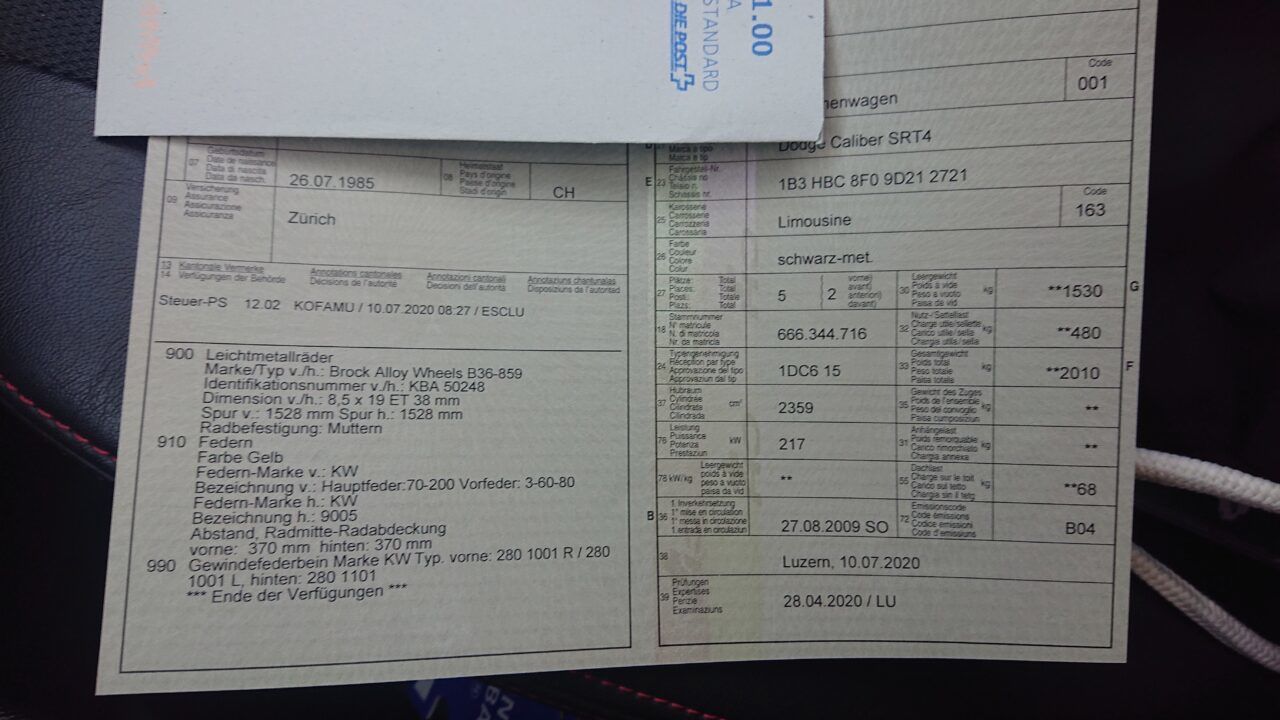 1.00
A
STANDARD
DIE POST
07 Geburtsdatum
Date de naissance
Data di nascita
Data da nasch.
26.07.1985
08 Heimatstaat
Pays d'origine
Paese d'origine
Stadi d'origin
CH
09 Versicherung
Assurance
Assicurazione
Assicuranza
Zürich
13 Kantonale Vermerke
14 Verfügungen der Behörde
Annotations cantonales
Décisions de l'autorité
Annotazioni cantonali
Decisioni dell'autorità
Annotaziuns chantunalas
Disposiziuns da l'autoritad
Steuer-PS 12.02 KOFAMU / 10.07.2020 08:27 / ESCLU
900 Leichtmetallräder
Marke/Typ v./h.: Brock Alloy Wheels B36-859
Identifikationsnummer v./h.: KBA 50248
Dimension v./h.: 8,5 x 19 ET 38 mm
Spur v.: 1528 mm Spur h.: 1528 mm
Radbefestigung: Muttern
910 Federn
Farbe Gelb
Federn-Marke v.: KW
Bezeichnung v.: Hauptfeder:70-200 Vorfeder: 3-60-80
Federn-Marke h.: KW
Bezeichnung h.: 9005
Abstand, Radmitte-Radabdeckung
vorne: 370 mm hinten: 370 mm
990 Gewindefederbein Marke KW Typ. vorne: 280 1001 R / 280
1001 L, hinten: 280 1101
*** Ende der Verfügungen ***
henwagen
Code
001
D
Marca e tipo
Marca e tip
Dodge Caliber SRT4
E 23 Fahrgestell-Nr.
Châssis no
Telaio n.
Schassis nr.
1B3 HBC 8F0 9D21 2721
25 Karosserie
Carrosserie
Carrozzeria
Carossaria
Limousine
Code
163
26 Farbe
Couleur
Colore
Colur
schwarz-met.
27 Plätze: Total
Places: Total
Posti: Totale
Plazs: Total
5
2
vorne)
avant)
anteriori)
davant)
30 Leergewicht
Poids à vide
Peso a vuoto
Paisa da vid
kg
**1530
G
18 Stammnummer
N° matricule
N. di matricola
Nr. da matricla
666.344.716
32 Nutz-/Sattellast
Charge utile/sellette
Carico utile/sella
Chargia utila/sella
kg
**480
24 Typengenehmigung
Réception par type
Approvazione del tipo
Approvaziun dal tip
1DC6 15
33 Gesamtgewicht
Poids total
Peso totale
Paisa totala
kg
**2010
F
37 Hubraum
Cylindrée
Cilindrata
Cilindrada
cm³
2359
35 Gewicht des Zuges
Poids de l'ensemble
Peso del convoglio
Paisa cumposiziun
kg
**
76 Leistung
Puissance
Potenza
Prestaziun
kW
217
31 Anhängelast
Poids remorquable
Carico rimorchiato
Chargia annexa
kg
**
78 kW/kg
Leergewicht
poids à vide
peso a vuoto
paisa da vid
**
55 Dachlast
Charge sur le toit
Carico sul tetto
Chargia sin il tetg
kg
**68
B 36 1. Inverkehrsetzung
1re mise en circulation
1a messa in circolazione
1. entrada en circulaziun
27.08.2009 SO
72 Emissionscode
Code émissions
Codice emissioni
Code d'emissiuns
B04
38
Luzern, 10.07.2020
39 Prüfungen
Expertises
Perizie
Examinaziuns
28.04.2020 / LU